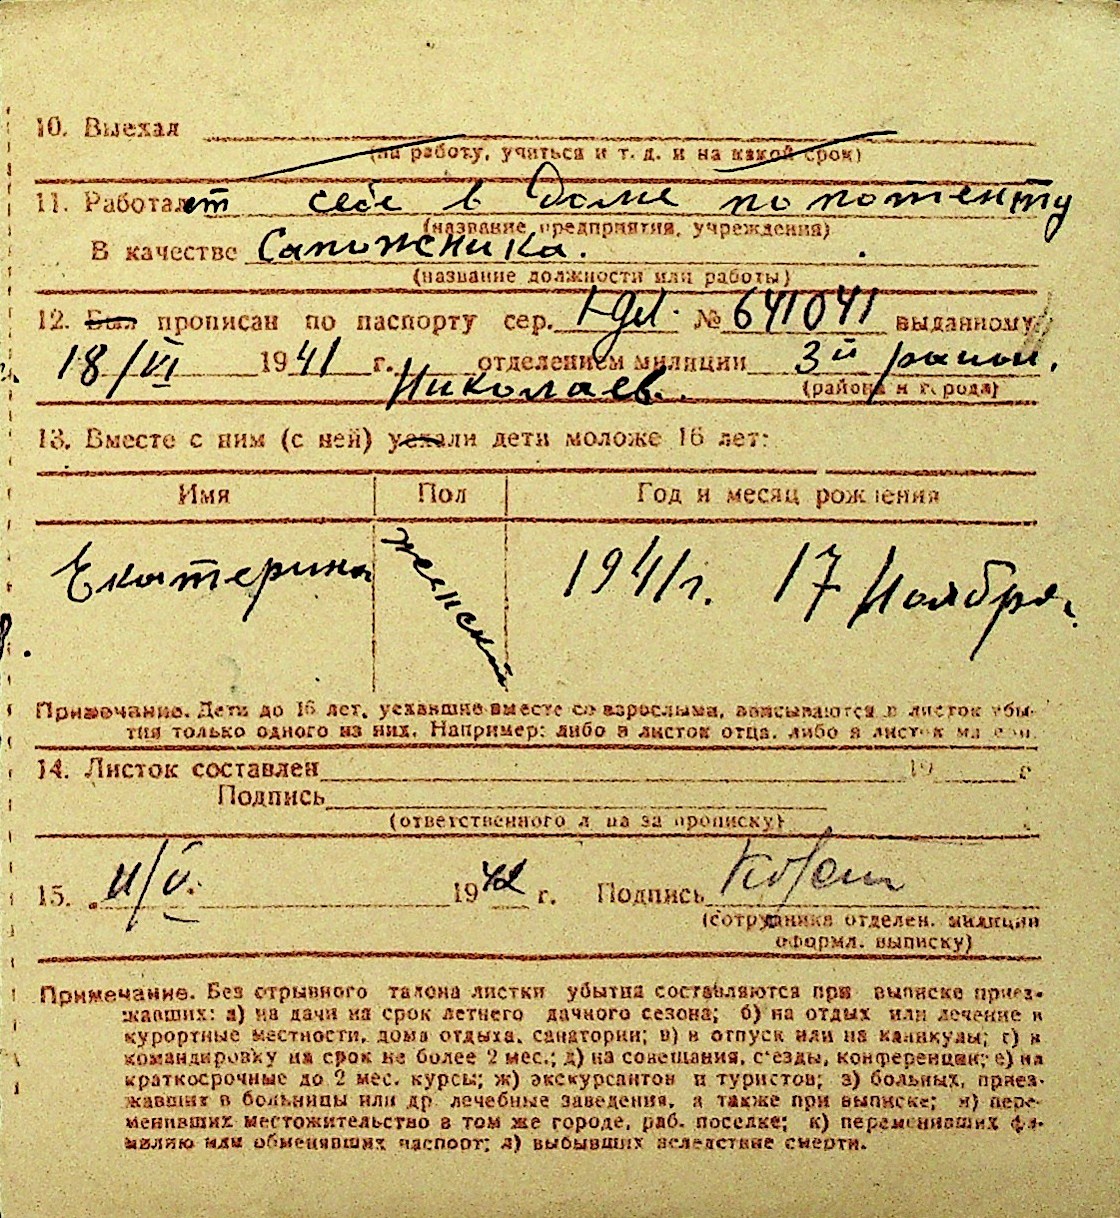 10. Выехал
(на работу, учиться и т. д. и на какой срок)
11. Работает себе в доме по потенту
(название предприятия, учреждения)
В качестве Сапожника.
(название должности или работы)
12. Был прописан по паспорту сер. № 641041 выданному
18/VI 1941 г. отделением милиции 3й район.
Николаев. (района и города)
13. Вместе с ним (с ней) уехали дети моложе 16 лет:
Имя Пол Год и месяц рождения
Екатерина женский 1941 г. 17 Ноября.
Примечание. Дети до 16 лет, уехавшие вместе со взрослыми, вписываются в листок убы-
тия только одного из них. Например: либо в листок отца, либо в листок
14. Листок составлен 19 г
Подпись
(ответственного лица за прописку)
15. 11/V. 1942 г. Подпись
(сотрудника отделен. милиции
оформл. выписку)
Примечание. Без отрывного талона листки убытия составляются при выписке приез-
жавших: а) на дачи на срок летнего дачного сезона; б) на отдых или лечение в
курортные местности, дома отдыха, санатории; в) в отпуск или на каникулы; г) в
командировку на срок не более 2 мес.; д) на совещания, с'езды, конференции; е) на
краткосрочные до 2 мес. курсы; ж) экскурсантов и туристов; з) больных, приез-
жавших в больницы или др. лечебные заведения, а также при выписке; и) пере-
менивших местожительство в том же городе, раб. поселке; к) переменивших фа-
милию или обменявших паспорт; л) выбывших вследствие смерти.